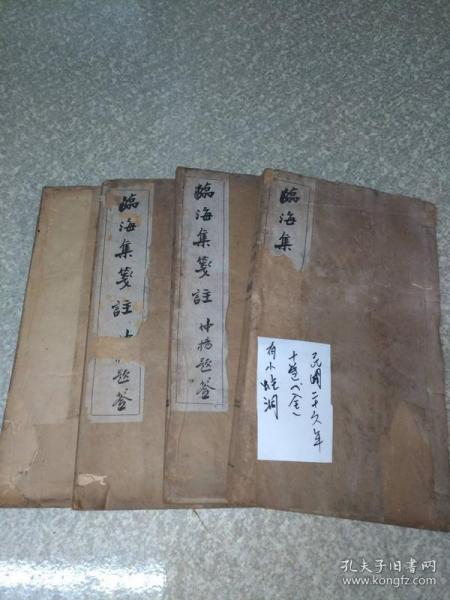 臨海集箋註
題签
臨海集箋註
題签
臨海集
民国二十六年
十卷（全）
有小蛀洞
孔夫子旧书网
www.kongfz.com